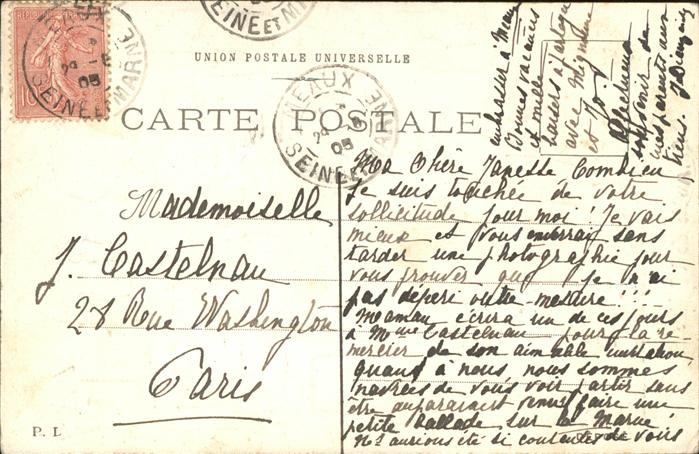 UNION POSTALE UNIVERSELLE
CARTE POSTALE
MEAUX
SEINE ET MARNE
05
Mademoiselle
J. Castelnau
28 Rue Washington
Paris
P. L
Ma Chère Janesse Combien
je suis touchée de votre
sollicitude pour moi! Je vais
mieux et vous enverrai sans
tarder une photographie pour
vous prouver que je n'ai
pas dépéri outre-mesure!!!
Maman écrira un de ces jours
à Mme Castelnau pour la re-
mercier de son aimable invitation,
quant à nous nous sommes
navrées de vous voir partir sans
être auparavant venus faire une
petite ballade sur la Marne!
Ns aurions été si contentes de vous
embrasser à Meaux
Bonnes vacances
et mille
baisers à
avec
et
Affectueux
souvenir de
mes parents aux
tiens.